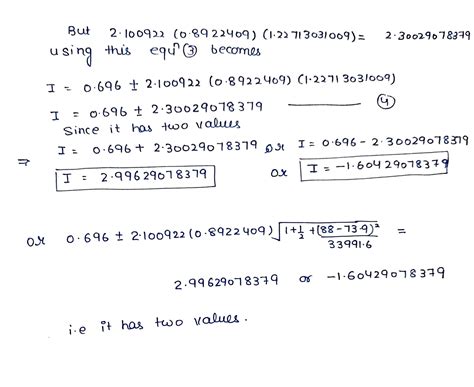 But 2.100922 (0.8922409) (1.22713031009) = 2.30029078379
using this equⁿ ③ becomes
I = 0.696 ± 2.100922 (0.8922409) (1.22713031009)
I = 0.696 ± 2.30029078379 ——— ④
Since it has two values
⇒ I = 0.696 + 2.30029078379 or I = 0.696 - 2.30029078379
I = 2.99629078379 or I = -1.60429078379
or 0.696 ± 2.100922 (0.8922409) √(1 + 1/2 + (88-73.9)²/33991.6) =
2.99629078379 or -1.60429078379
i.e it has two values.